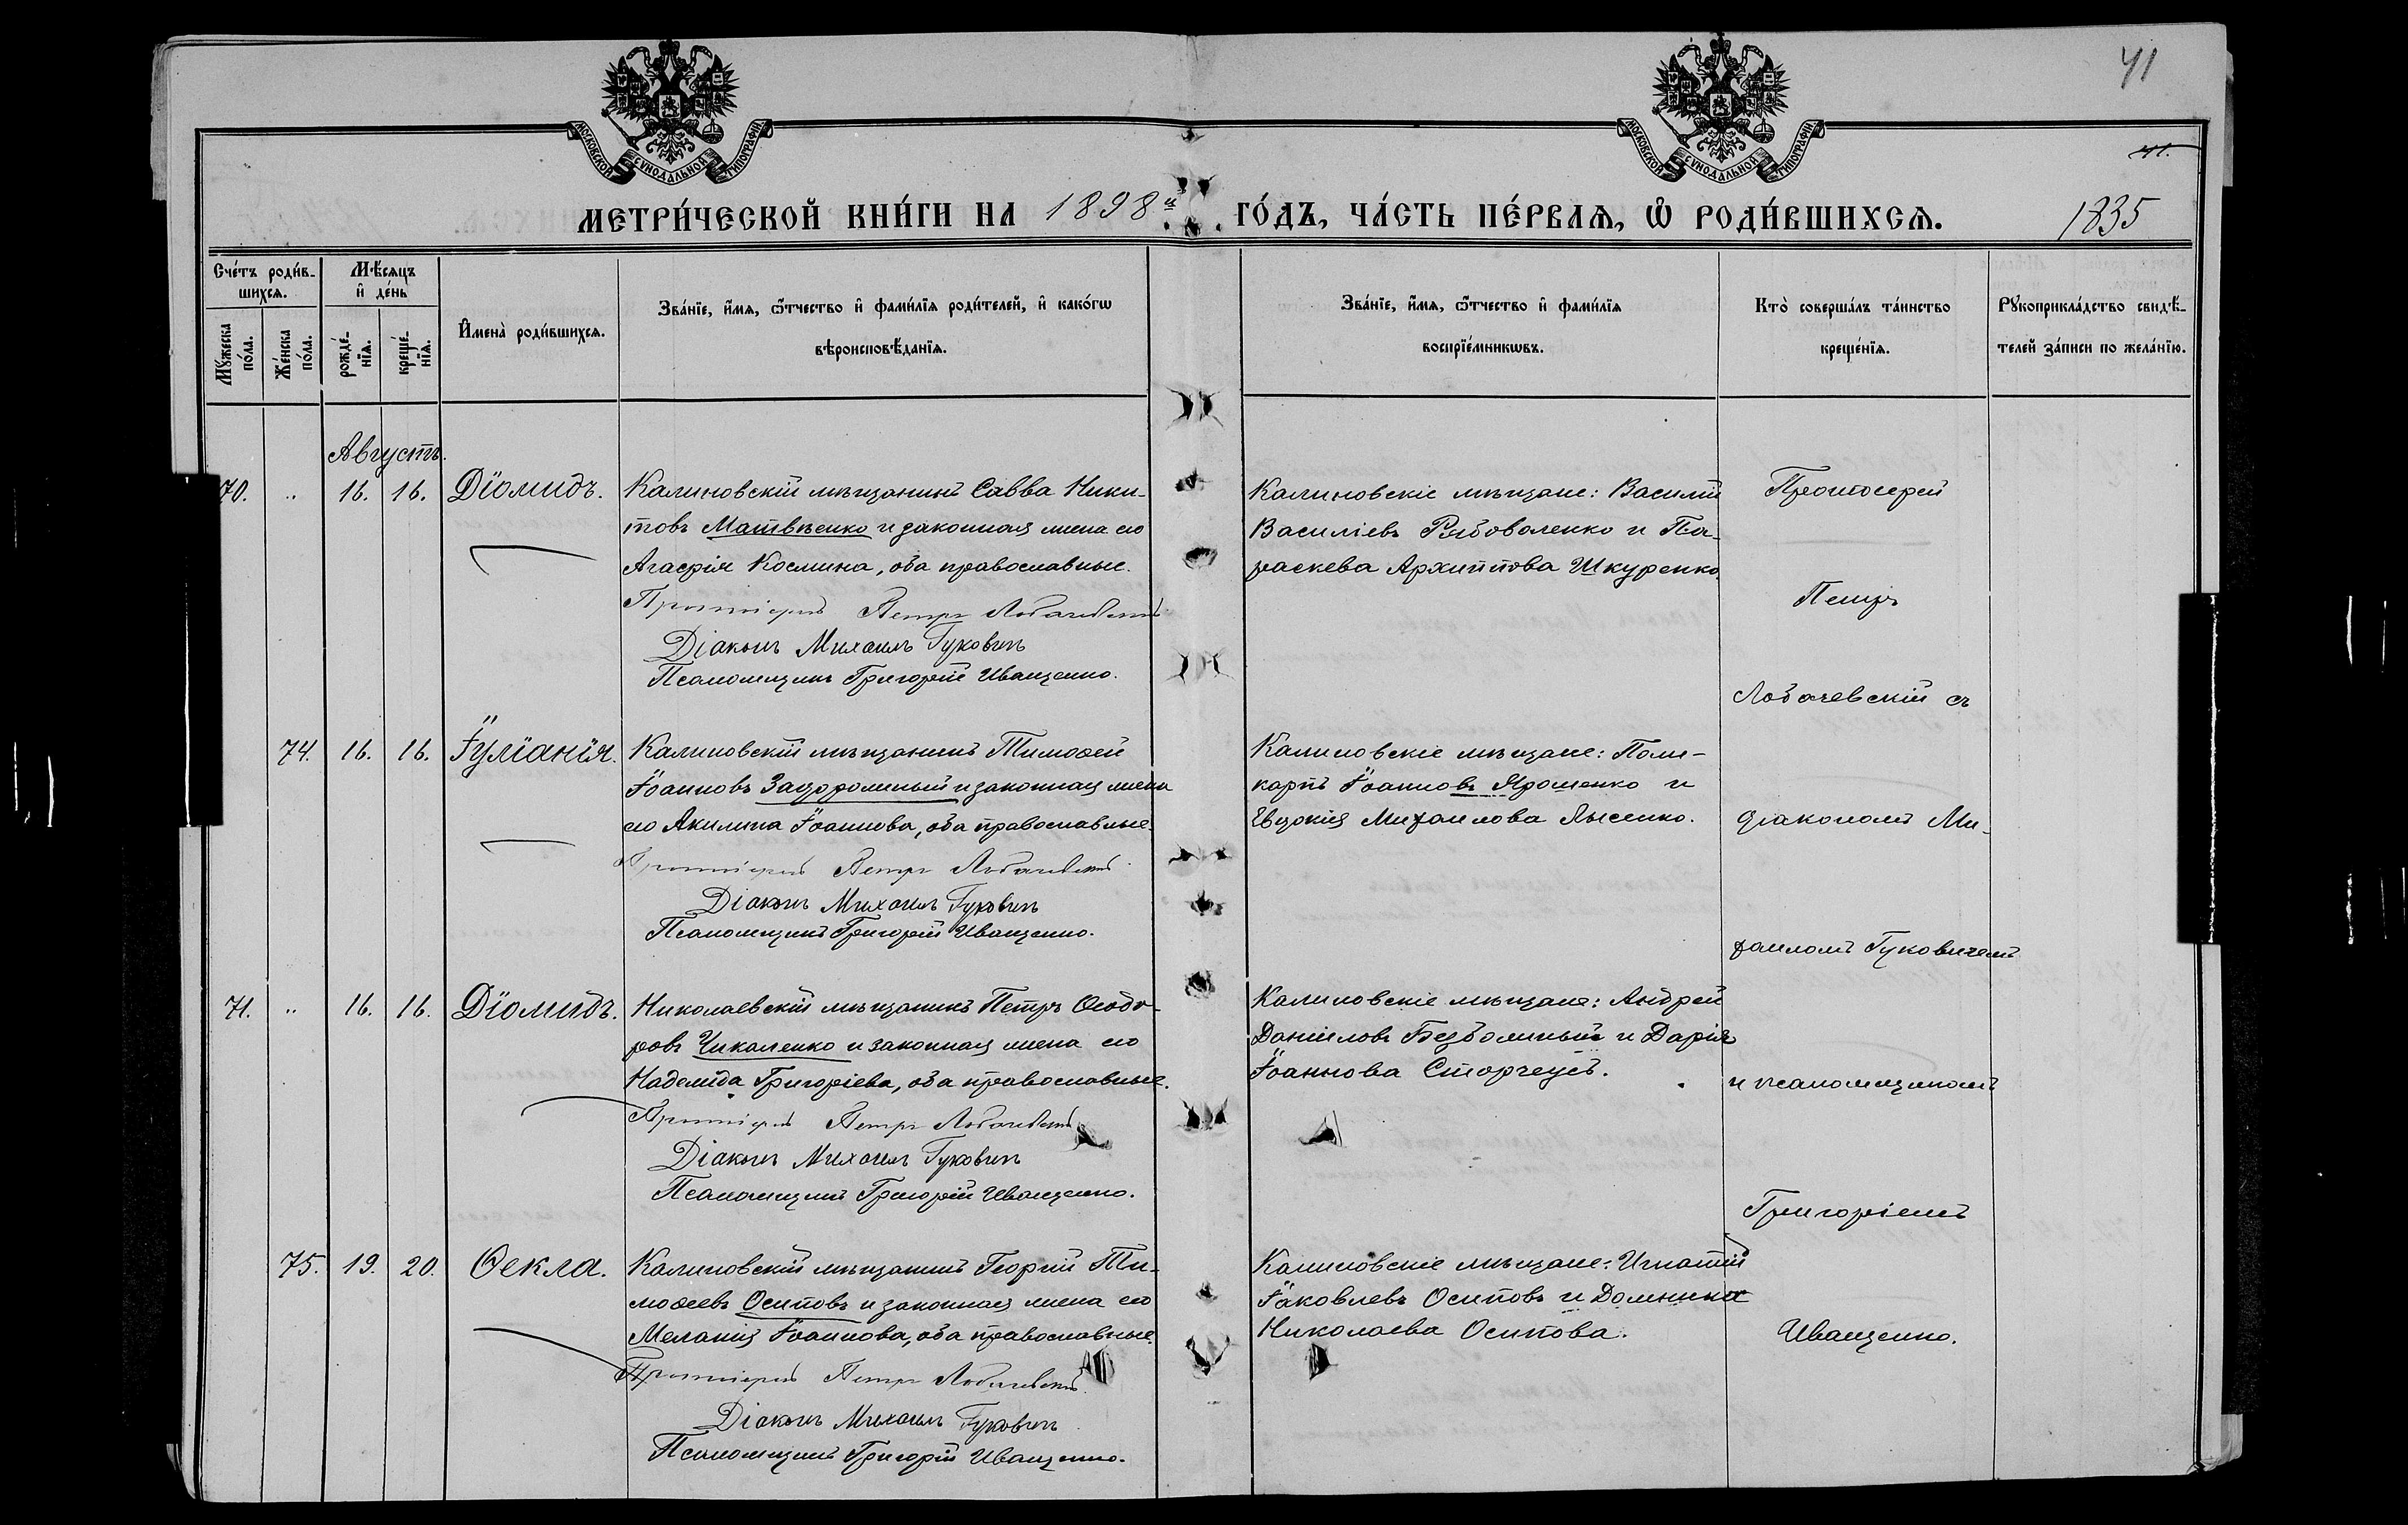 41
МОСКОВСКОЙ СѴНОДАЛЬНОЙ ТИПОГРАФІИ
МОСКОВСКОЙ СѴНОДАЛЬНОЙ ТИПОГРАФІИ
41.
МЕТРИ́ЧЕСКОЙ КНИ́ГИ НА 1898й ГО́ДЪ, ЧА́СТЬ ПЕ́РВАѦ, Ѽ РОДИ́ВШИХСѦ.
1835
Сче́тъ роди́в-
шихсѧ.
Мꙋжеска по́ла.
Же́нска по́ла.
Мѣ́сѧцъ и҆ де́нь
рожде́-нїѧ.
креще́-нїѧ.
И҆мена̀ роди́вшихсѧ.
Зва́нїе, и҆́мѧ, ѻ҆́тчество и҆ фами́лїѧ роди́телей, и҆ како́гѡ
вѣроисповѣ́данїѧ.
Зва́нїе, и҆́мѧ, ѻ҆́тчество и҆ фами́лїѧ
воспрїе́мникѡвъ.
Кто̀ соверша́лъ та́инство
креще́нїѧ.
Рꙋкоприкла́дство свидѣ́-
телей за́писи по жела́нїю.
Августъ.
70. „ 16. 16. Діомидъ.
Калиновскій мѣщанинъ Савва Ники-
товъ Матвѣенко и законная жена его
Агафія Космина, оба православные.
Протоіерей Петръ Лобачевскій
Діаконъ Михаилъ Гуковичъ
Псаломщикъ Григорій Иващенко.
Калиновскіе мѣщане: Василій
Василіевъ Рябоволенко и Па-
раскева Архиппова Шкуренко.
74. 16. 16. Іуліанія.
Калиновскій мѣщанинъ Тимофей
Іоанновъ Задорожный и законная жена
его Акилина Іоаннова, оба православные.
Протоіерей Петръ Лобачевскій
Діаконъ Михаилъ Гуковичъ
Псаломщикъ Григорій Иващенко.
Калиновскіе мѣщане: Поли-
карпъ Іоанновъ Ярошенко и
Евдокія Михаилова Лысенко.
71. „ 16. 16. Діомидъ.
Николаевскій мѣщанинъ Петръ Ѳеодо-
ровъ Чикаленко и законная жена его
Надежда Григоріева, оба православные.
Протоіерей Петръ Лобачевскій
Діаконъ Михаилъ Гуковичъ
Псаломщикъ Григорій Иващенко.
Калиновскіе мѣщане: Андрей
Даніиловъ Безбожный и Дарія
Іоаннова Сторчеусъ.
75. 19. 20. Ѳекла.
Калиновскій мѣщанинъ Георгій Ти-
мофеевъ Осиповъ и законная жена его
Меланія Іоаннова, оба православные.
Протоіерей Петръ Лобачевскій
Діаконъ Михаилъ Гуковичъ
Псаломщикъ Григорій Иващенко.
Калиновскіе мѣщане: Игнатій
Іаковлевъ Осиповъ и Домника
Николаева Осипова.
Протоіерей
Петръ
Лобачевскій съ
діакономъ Ми-
хаиломъ Гуковичемъ
и псаломщикомъ
Григоріемъ
Иващенко.